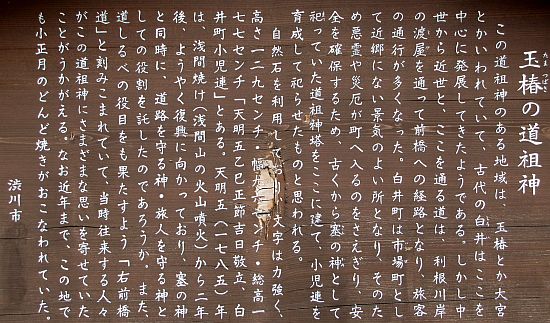 玉椿の道祖神
たま つばき
この道祖神のある地域は、玉椿とか大宮
とかいわれていて、古代の白井はここを
中心に発展してきたようである。しかし中
世から近世と、ここを通る道は、利根川岸
の渡屋を通って前橋への経路となり、旅客
の通行が多くなった。白井町は市場町とし
て近郷にない景気のよい所となり、そのた
め悪霊や災厄が町へ入るのをさえぎり、安
全を確保するため、古くから塞の神として
祀っていた道祖神塔をここに建て、小児連を
育成して祀らせたものと思われる。
自然石を利用し 文字は力強く、
高さ一二九センチ・幅 センチ・総高一
七七センチ「天明五乙巳正節吉日敬立、白
井町小児連」とある。天明五(一七八五)年
は、浅間焼け(浅間山の火山噴火)から二年
後、ようやく復興に向かっており、塞の神
と同時に、道路を守る神・旅人を守る神と
しての役割を託したのであろうか。また、
道しるべの役目をも果たすよう「右前橋
道」と刻みこまれていて、当時往来する人々
がこの道祖神にさまざまな思いを寄せていた
ことがうかがえる。なお近年まで、この地で
も小正月のどんど焼きがおこなわれていた。
渋川市